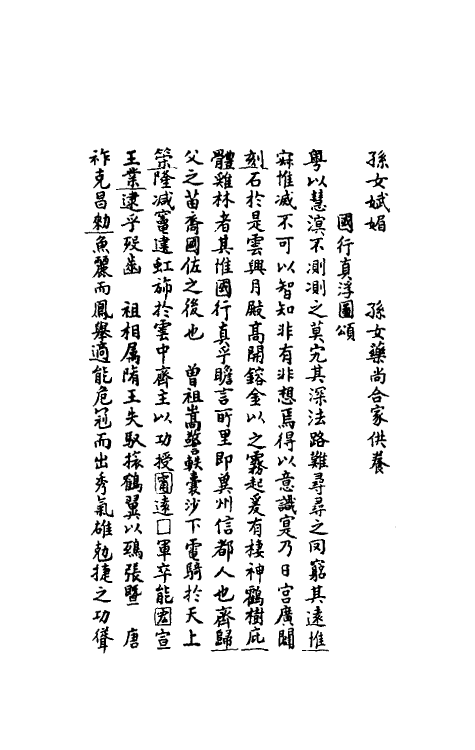 孫女娬娟　　孫女藥尚合家供養
國行真浮圖頌
粵以慧溟不測測之莫究其深法路難尋尋之罔窮其遠惟
寂惟滅不可以智知非有非想焉得以意識寔乃日宮廣闢
刻石於是雲興月殿髙開鎔金以之霧起爰有棲神鶴樹庇
體雞林者其惟國行真乎瞻言所里即冀州信都人也齊歸
父之苗裔國佐之後也　曽祖嵩謍軼囊沙下電騎於天上
榮隆减竈建虹旆於雲中齊主以功授甯遠□軍卒能宏宣
王業逮乎歿齒　祖相属隋王失馭接鶴翼以鵶張曁　唐
祚克昌勑魚麗而鳳舉適能危冠而出秀氣雄勊捷之功聳